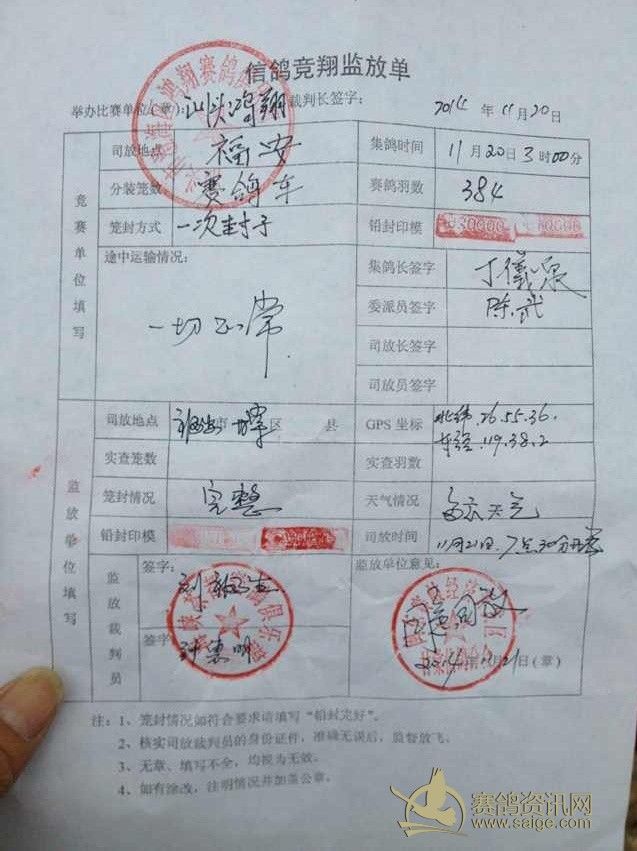 信鸽竞翔监放单
举办比赛单位(章): 汕头鸿翔 裁判长签字: 2014 年 11月20日
竞赛单位填写
司放地点 福安 集鸽时间 11月20日3时00分
分装笼数 赛鸽车 赛鸽羽数 384
笼封方式 一次封子 铅封印模
途中运输情况: 一切正常
集鸽长签字
委派员签字 陈武
司放长签字
司放员签字
监放单位填写
司放地点 市 区 县 GPS 坐标 北纬.26.55.36. 东经.119.38.2
实查笼数 实查羽数
笼封情况 完整 天气情况 多云天气
铅封印模 司放时间 11月21日.7点30分
监放裁判员 签字: 监放单位意见:
签字: 同意放
2014年11月21日(章)
注: 1、笼封情况如符合要求请填写“铅封完好”。
2、核实司放裁判员的身份证件,准确无误后,监督放飞。
3、无章、填写不全,均视为无效。
4、如有涂改,注明情况并加盖公章。
赛鸽资讯网
www.saige.com